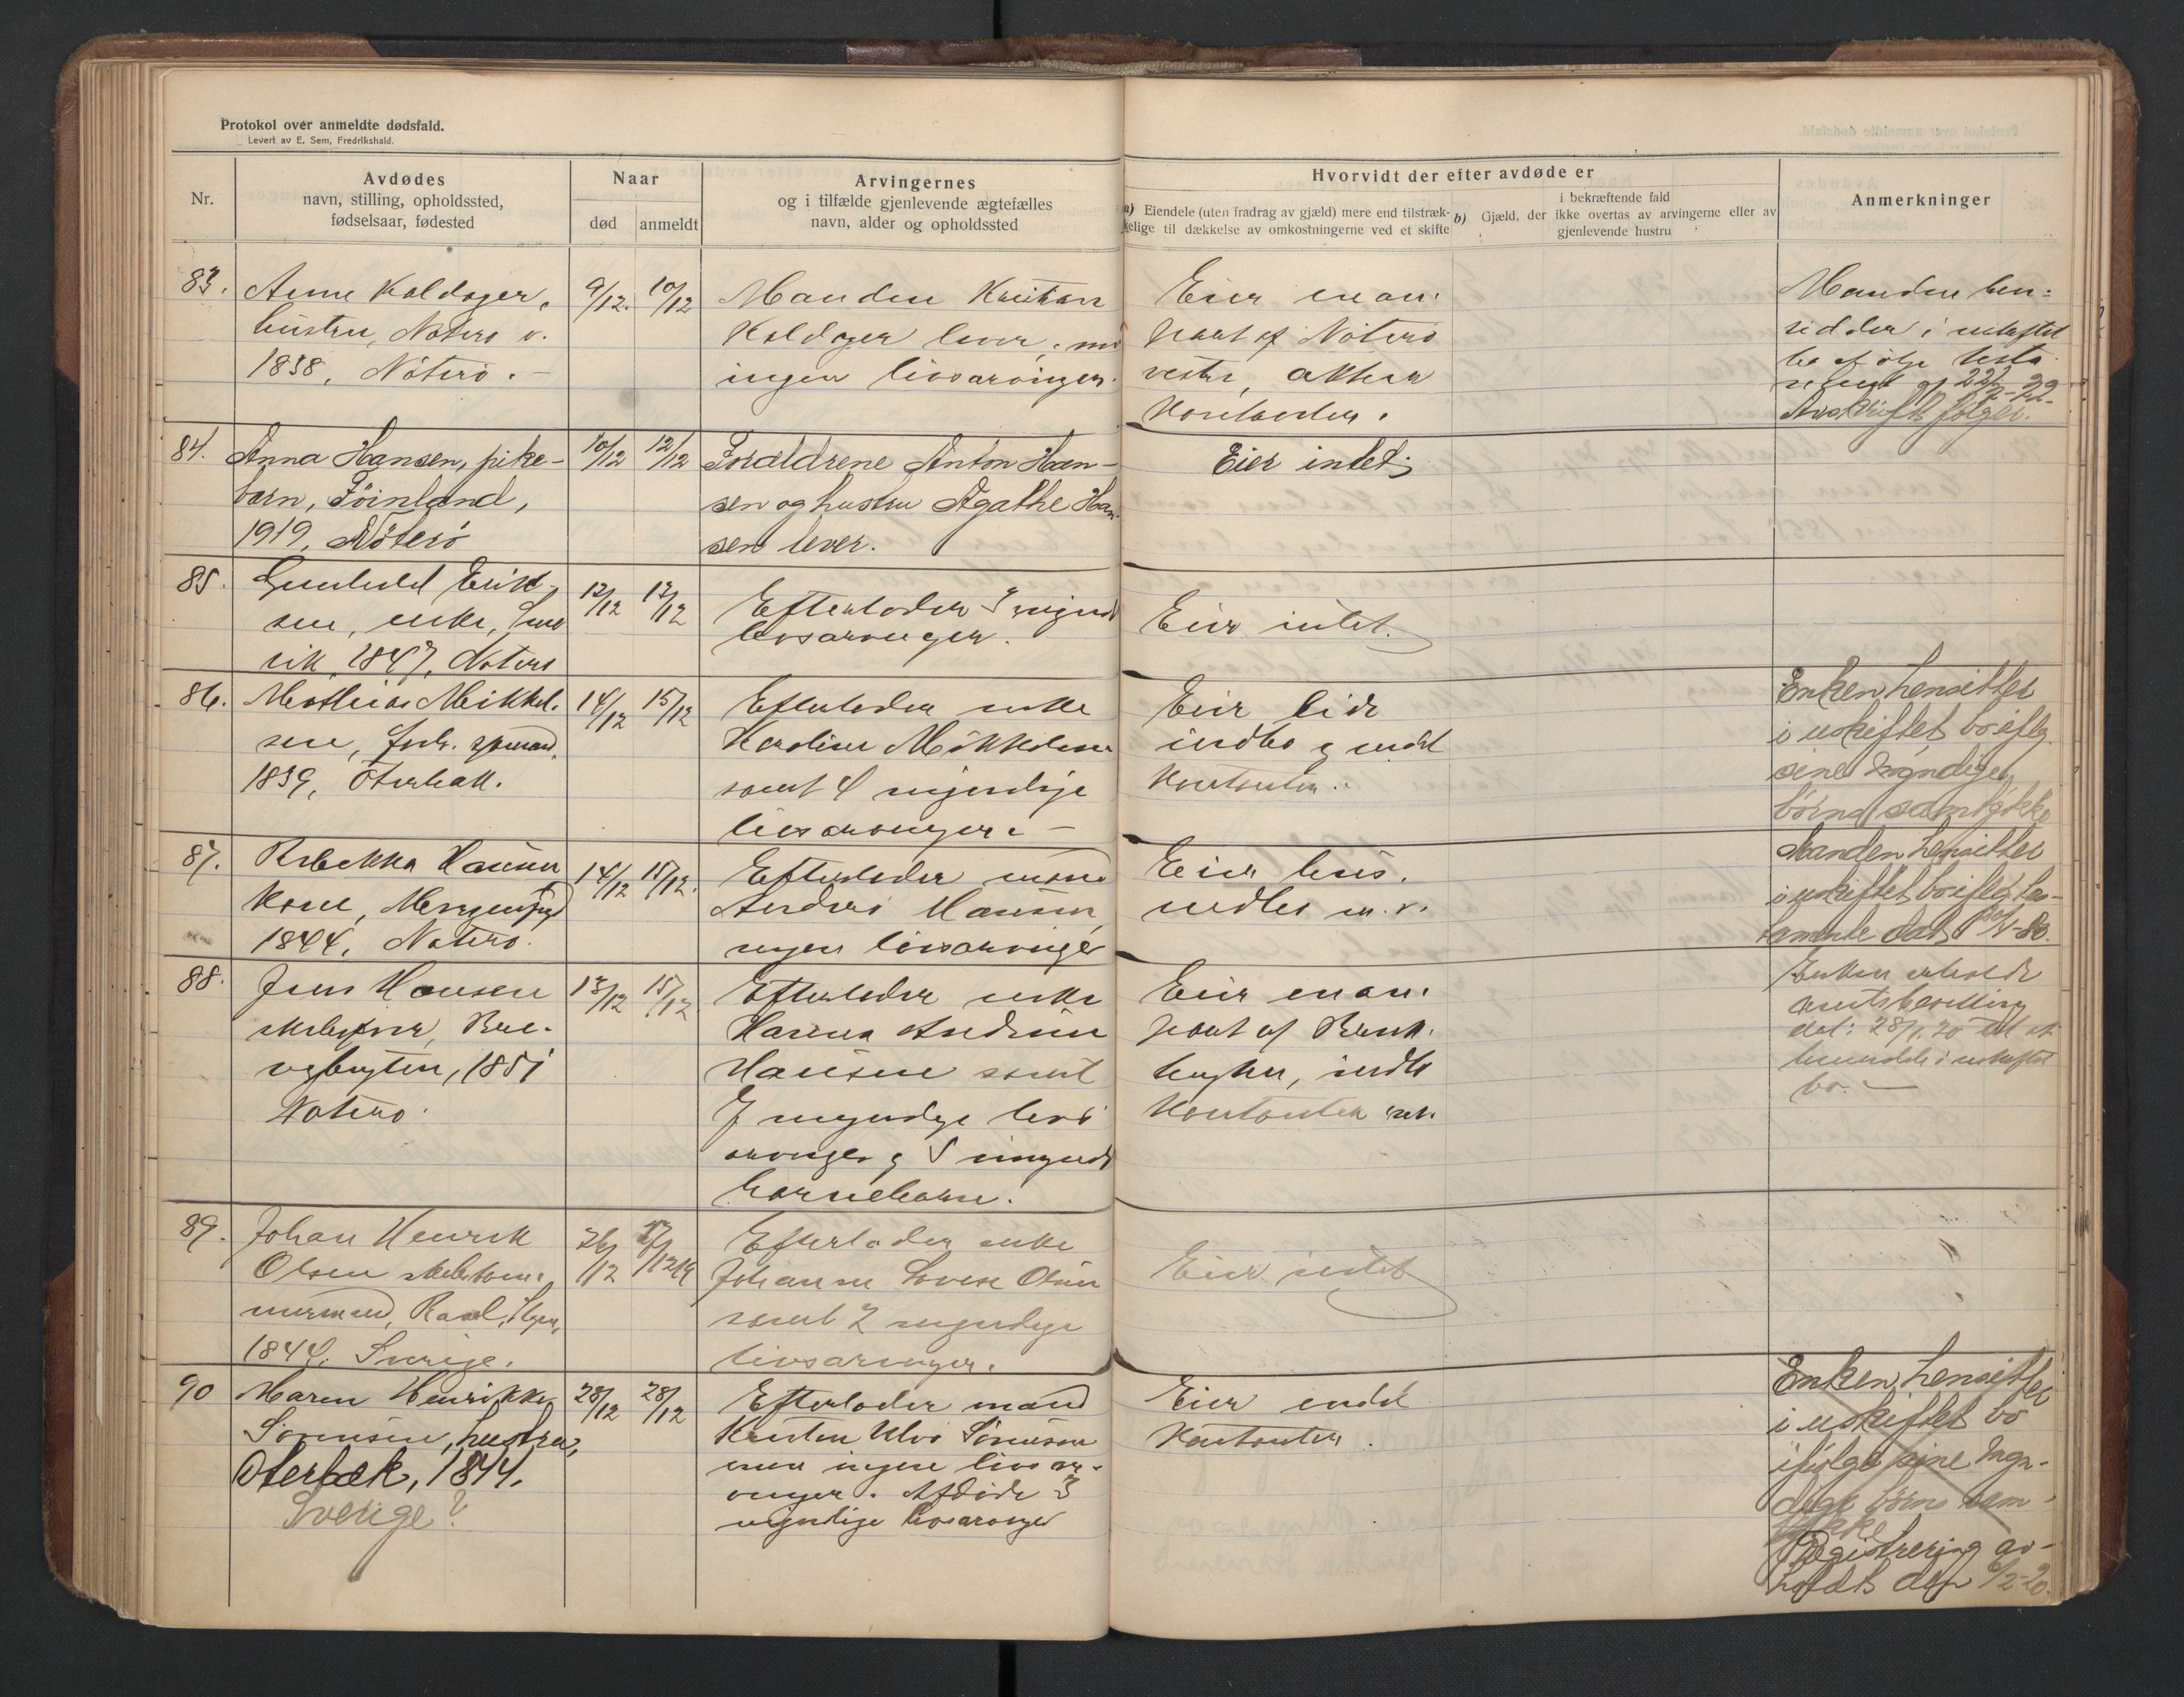 Protokol over anmeldte dødsfald.
Levert av E. Sem, Fredrikshald.
Nr.
Avdødes
navn, stilling, opholdssted,
fødselsaar, fødested
Naar
død
anmeldt
Arvingernes
og i tilfælde gjenlevende ægtefælles
navn, alder og opholdssted
Hvorvidt der efter avdøde er
a) Eiendele (uten fradrag av gjæld) mere end tilstræk-
kelige til dækkelse av omkostningerne ved et skifte
i bekræftende fald
b) Gjæld, der ikke overtas av arvingerne eller av
gjenlevende hustru
Anmerkninger
83.
Anne Koldager,
hustru, Nøterø v.
1838, Nøterø.
9/12.
10/12
Manden Kristian
Koldager lever,
ingen livsarvinger.
Eier en an-
part af Nøterø
vestre,
Kontanter.
Manden hen-
sidder i uskiftet
bo ifølge testa
ment af 22/2-92
Avskrift følger.
84.
Anna Hansen, pike-
barn, Föinland,
1919, Nöterö
10/12
12/12
Forældrene Anton Han-
sen og hustru Agathe Han-
sen lever.
Eier intet.
85.
Gunhild Erik-
sen, enke,
1847, Nøterø
12/12
13/12
Efterlader
livsarvinger.
Eier intet.
86.
Mathias Mikkel-
sen, forh. sjømand,
1839, Oterbæk.
14/12
15/12
Efterlader enke
Karoline Mikkelsen
samt 4 myndige
livsarvinger.
Eier lidt
indbo og endel
Kontanter.
Enken hensitter
i uskiftet bo iflg.
sine myndige
börns samtykke
87.
Rebekka Hansen
Kone,
1844, Nøterø.
14/12
15/12.
Efterlader mand
Anders Hansen,
ingen livsarvinger
Eier hus,
indbo m.v.
Manden hensitter
i uskiftet bo iflg. tes-
tamente dat.
88.
Jens Hansen
Bræ-
vegbugten, 1851
Nøterø.
13/12
15/12
Efterlader enke
Hanna Andrine
Hansen samt
7 myndige livs
arvinger og 5 umyndige
barnebarn.
Eier en an-
part af
bugten, indbo
Kontanter
Enken erholdt
amtsbevilling
dat: 28/1.20 til at
hensidde i uskiftet
bo.
89.
Johan Henrik
Olsen skibstøm-
mermand,
1844. Sverige.
26/12
27/12 19
Efterlader enke
Johanne Lovise Olsen
samt 2 myndige
livsarvinger.
Eier intet
90
Maren Henrikke
Sørensen, hustru,
Oterbæk, 1844.
Sverige?
28/12
28/12
Efterlader mand
Kristen Ulvø Sørensen
men ingen livsar-
vinger. Afdøde 3
myndige livsarvinger
Eier endel
Kontanter.
Enken hensitter
i uskiftet bo
ifölge sine myn-
dige börns sam-
tykke
Registrering av-
holdt den 6/2-20.